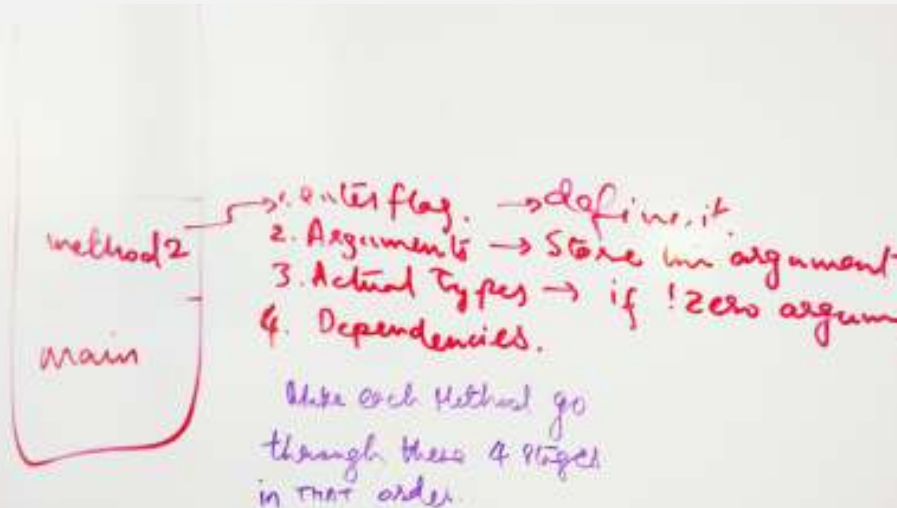 method2
main
1. enter flag. → define it.
2. Arguments → Store in argument
3. Actual Types → if !zero argum
4. Dependencies.
Make each Method go
through these 4 stages
in THAT order.